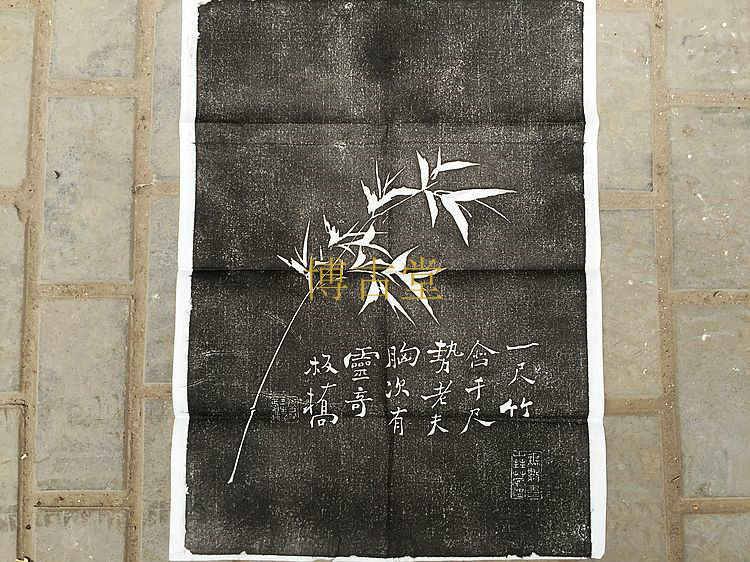 一尺竹
含千尺
勢老夫
胸次有
靈奇
板橋
博古堂